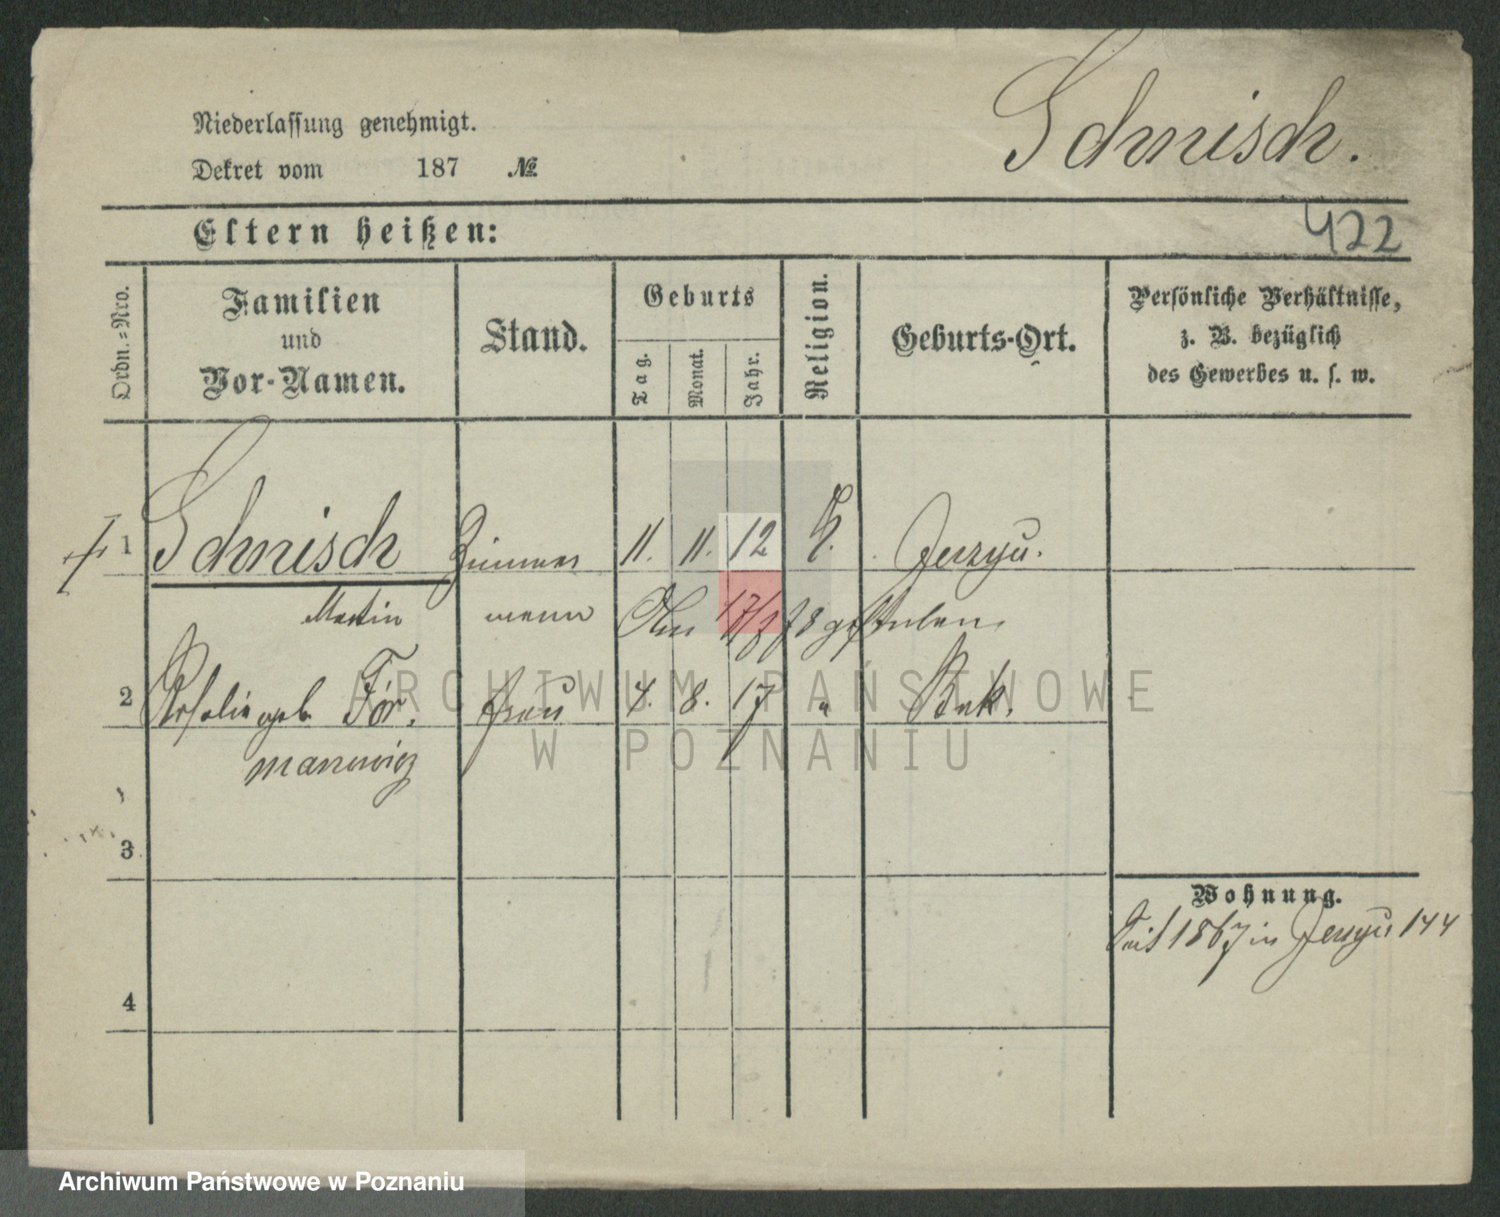 Schmisch.
Niederlassung genehmigt.
Dekret vom 187 №
Eltern heißen:
422
Ordn.-Nro.
Familien
und
Vor-Namen.
Stand.
Geburts
Tag.
Monat.
Jahr.
Religion.
Geburts-Ort.
Persönliche Verhältnisse,
z. B. bezüglich
des Gewerbes u. s. w.
1 Schmisch Zimmer 11. 11. 12 K. Jerzyce.
Martin mann Am 17/ 78 gestorben
2 Rosalie geb. För- Frau 4. 8. 17 " Buk.
manowicz
3
4
Wohnung.
Seit 1867 in Jerzyce 144
ARCHIWUM PAŃSTWOWE
W POZNANIU
Archiwum Państwowe w Poznaniu